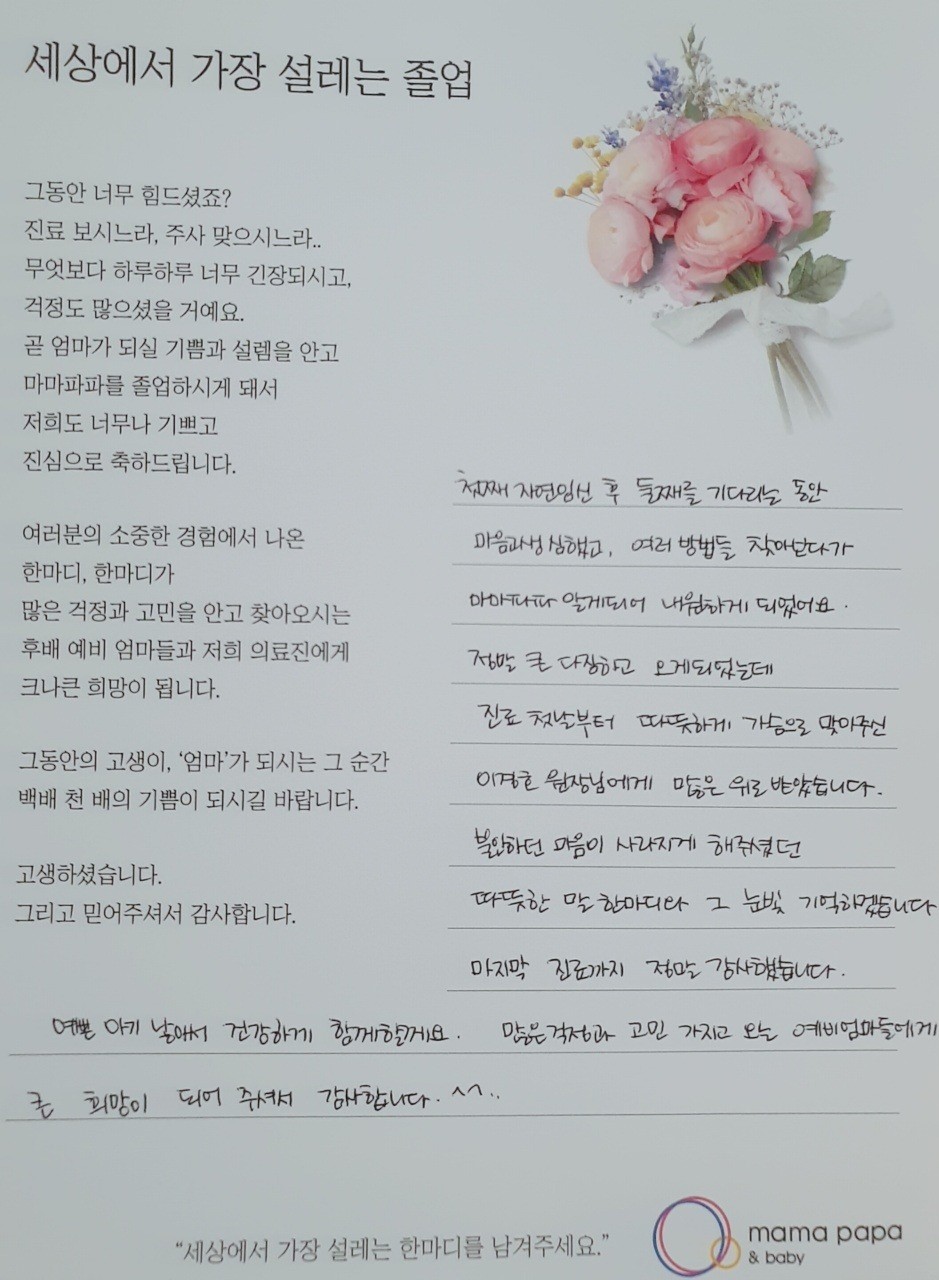 세상에서 가장 설레는 졸업
그동안 너무 힘드셨죠?
진료 보시느라, 주사 맞으시느라..
무엇보다 하루하루 너무 긴장되시고,
걱정도 많으셨을 거예요.
곧 엄마가 되실 기쁨과 설렘을 안고
마마파파를 졸업하시게 돼서
저희도 너무나 기쁘고
진심으로 축하드립니다.
여러분의 소중한 경험에서 나온
한마디, 한마디가
많은 걱정과 고민을 안고 찾아오시는
후배 예비 엄마들과 저희 의료진에게
크나큰 희망이 됩니다.
그동안의 고생이, ‘엄마’가 되시는 그 순간
백배 천 배의 기쁨이 되시길 바랍니다.
고생하셨습니다.
그리고 믿어주셔서 감사합니다.
첫째 자연임신 후 둘째를 기다리는 동안
마음고생 심했고, 여러 방법들 찾아보다가
마마파파 알게되어 내원하게 되었어요.
정말 큰 다짐하고 오게되었는데
진료 첫날부터 따뜻하게 가슴으로 맞아주신
이경호 원장님에게 많은 위로 받았습니다.
불안하던 마음이 사라지게 해주셨던
따뜻한 말 한마디와 그 눈빛 기억하겠습니다
마지막 진료까지 정말 감사했습니다.
예쁜 아기 낳아서 건강하게 함께할게요. 많은걱정과 고민 가지고 오는 예비엄마들에게
큰 희망이 되어 주셔서 감사합니다. ^^..
“세상에서 가장 설레는 한마디를 남겨주세요.”
mama papa
& baby